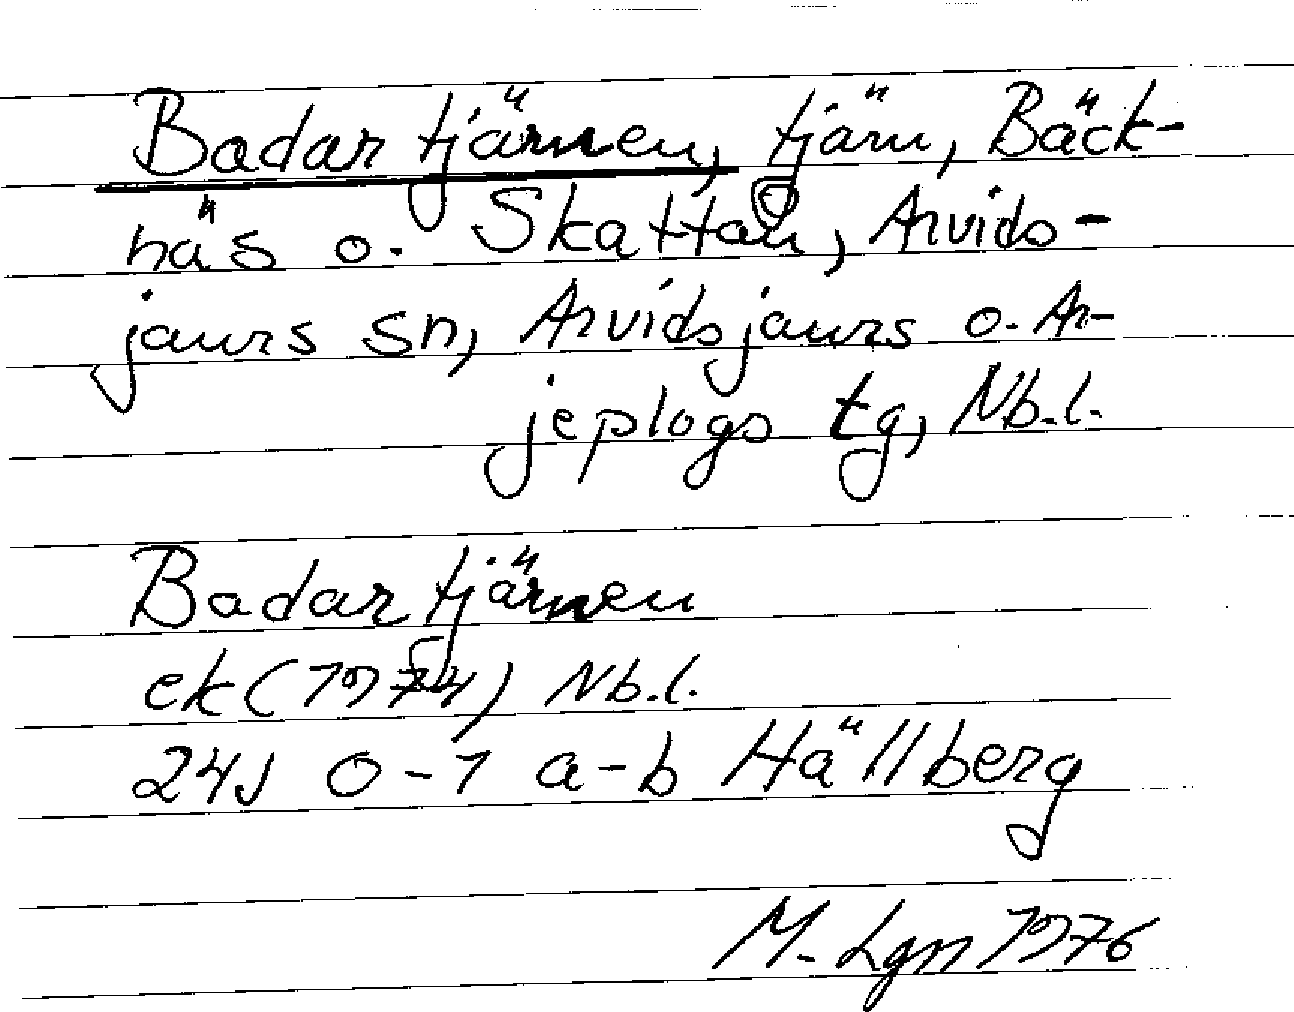 Badartjärnen, tjärn, Bäck-
näs o. Skattan, Arvids-
jaurs sn, Arvidsjaurs o. Ar-
jeplogs tg, Nb.l.
Badartjärnen
ek (1974) Nb.l.
24J 0-1 a-b Hällberg
M. Lgn 1976